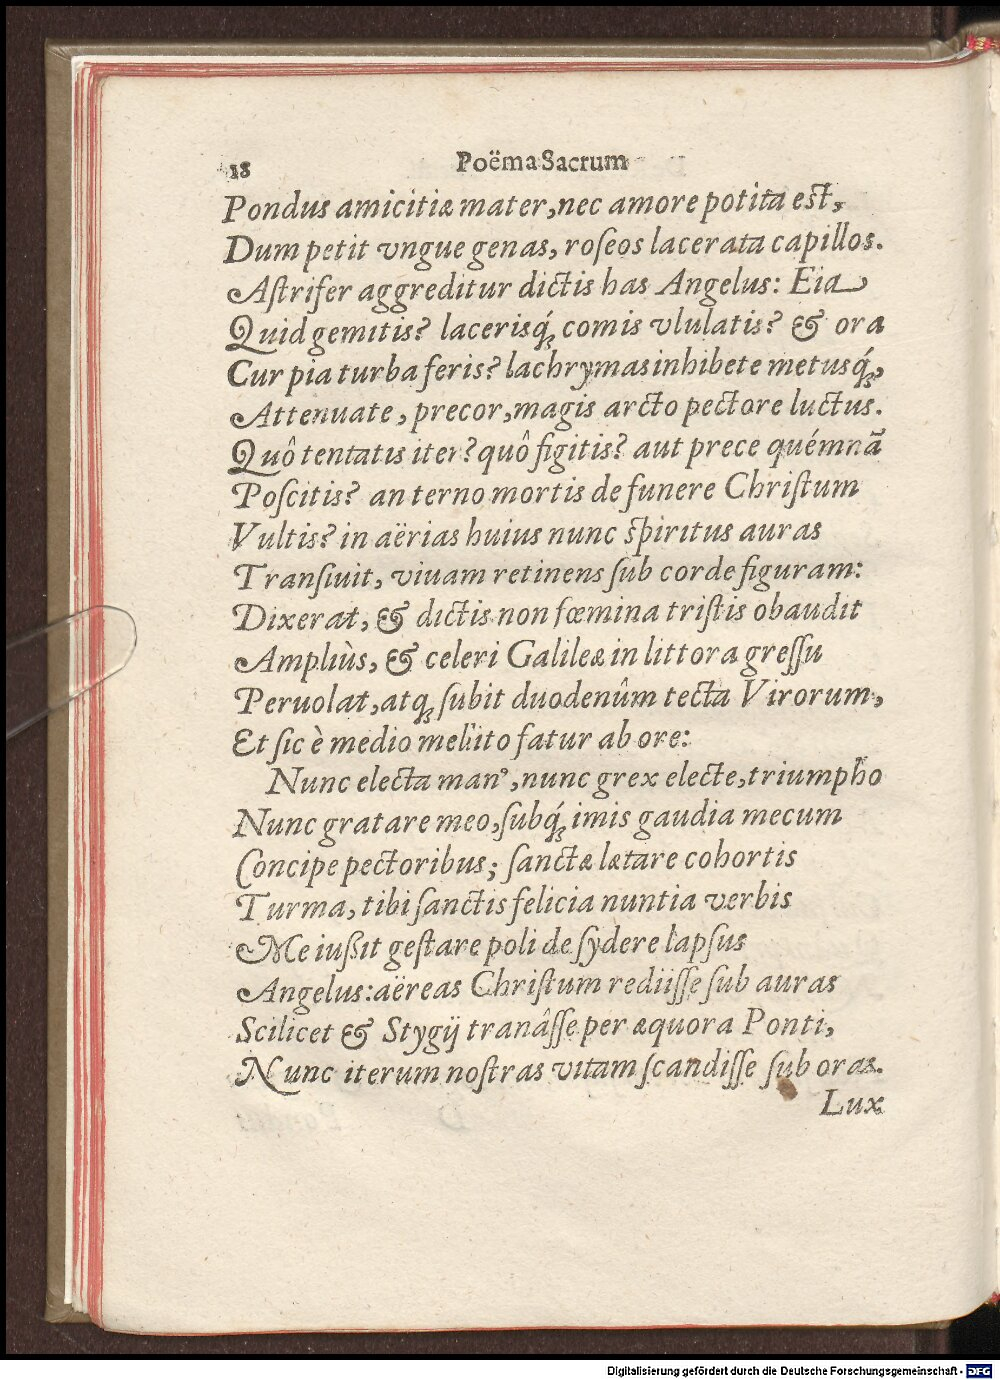 18 Poëma Sacrum
Pondus amicitiæ mater, nec amore potita est,
Dum petit vngue genas, roſeos lacerata capillos.
Aſtrifer aggreditur dictis has Angelus: Eia
Quid gemitis? lacerisq́; comis vlulatis? & ora
Cur pia turba feris? lachrymas inhibete metusq́;,
Attenuate, precor, magis arcto pectore luctus.
Quô tentatis iter? quô figitis? aut prece quémnã
Poſcitis? an terno mortis de funere Chriſtum
Vultis? in aërias huius nunc ſpiritus auras
Tranſiuit, viuam retinens ſub corde figuram:
Dixerat, & dictis non fœmina triſtis obaudit
Ampliùs, & celeri Galileæ in littora greſſu
Peruolat, atq; ſubit duodenûm tecta Virorum,
Et ſic è medio mellito fatur ab ore:
Nunc electa manꝰ, nunc grex electe, triumpho
Nunc gratare meo, ſubq́; imis gaudia mecum
Concipe pectoribus; ſanctæ lætare cohortis
Turma, tibi ſanctis felicia nuntia verbis
Me iußit geſtare poli de ſydere lapſus
Angelus: aëreas Chriſtum rediiſſe ſub auras
Scilicet & Stygij tranâſſe per æquora Ponti,
Nunc iterum noſtras vitam ſcandiſſe ſub oras.
Lux
Digitalisierung gefördert durch die Deutsche Forschungsgemeinschaft - DFG